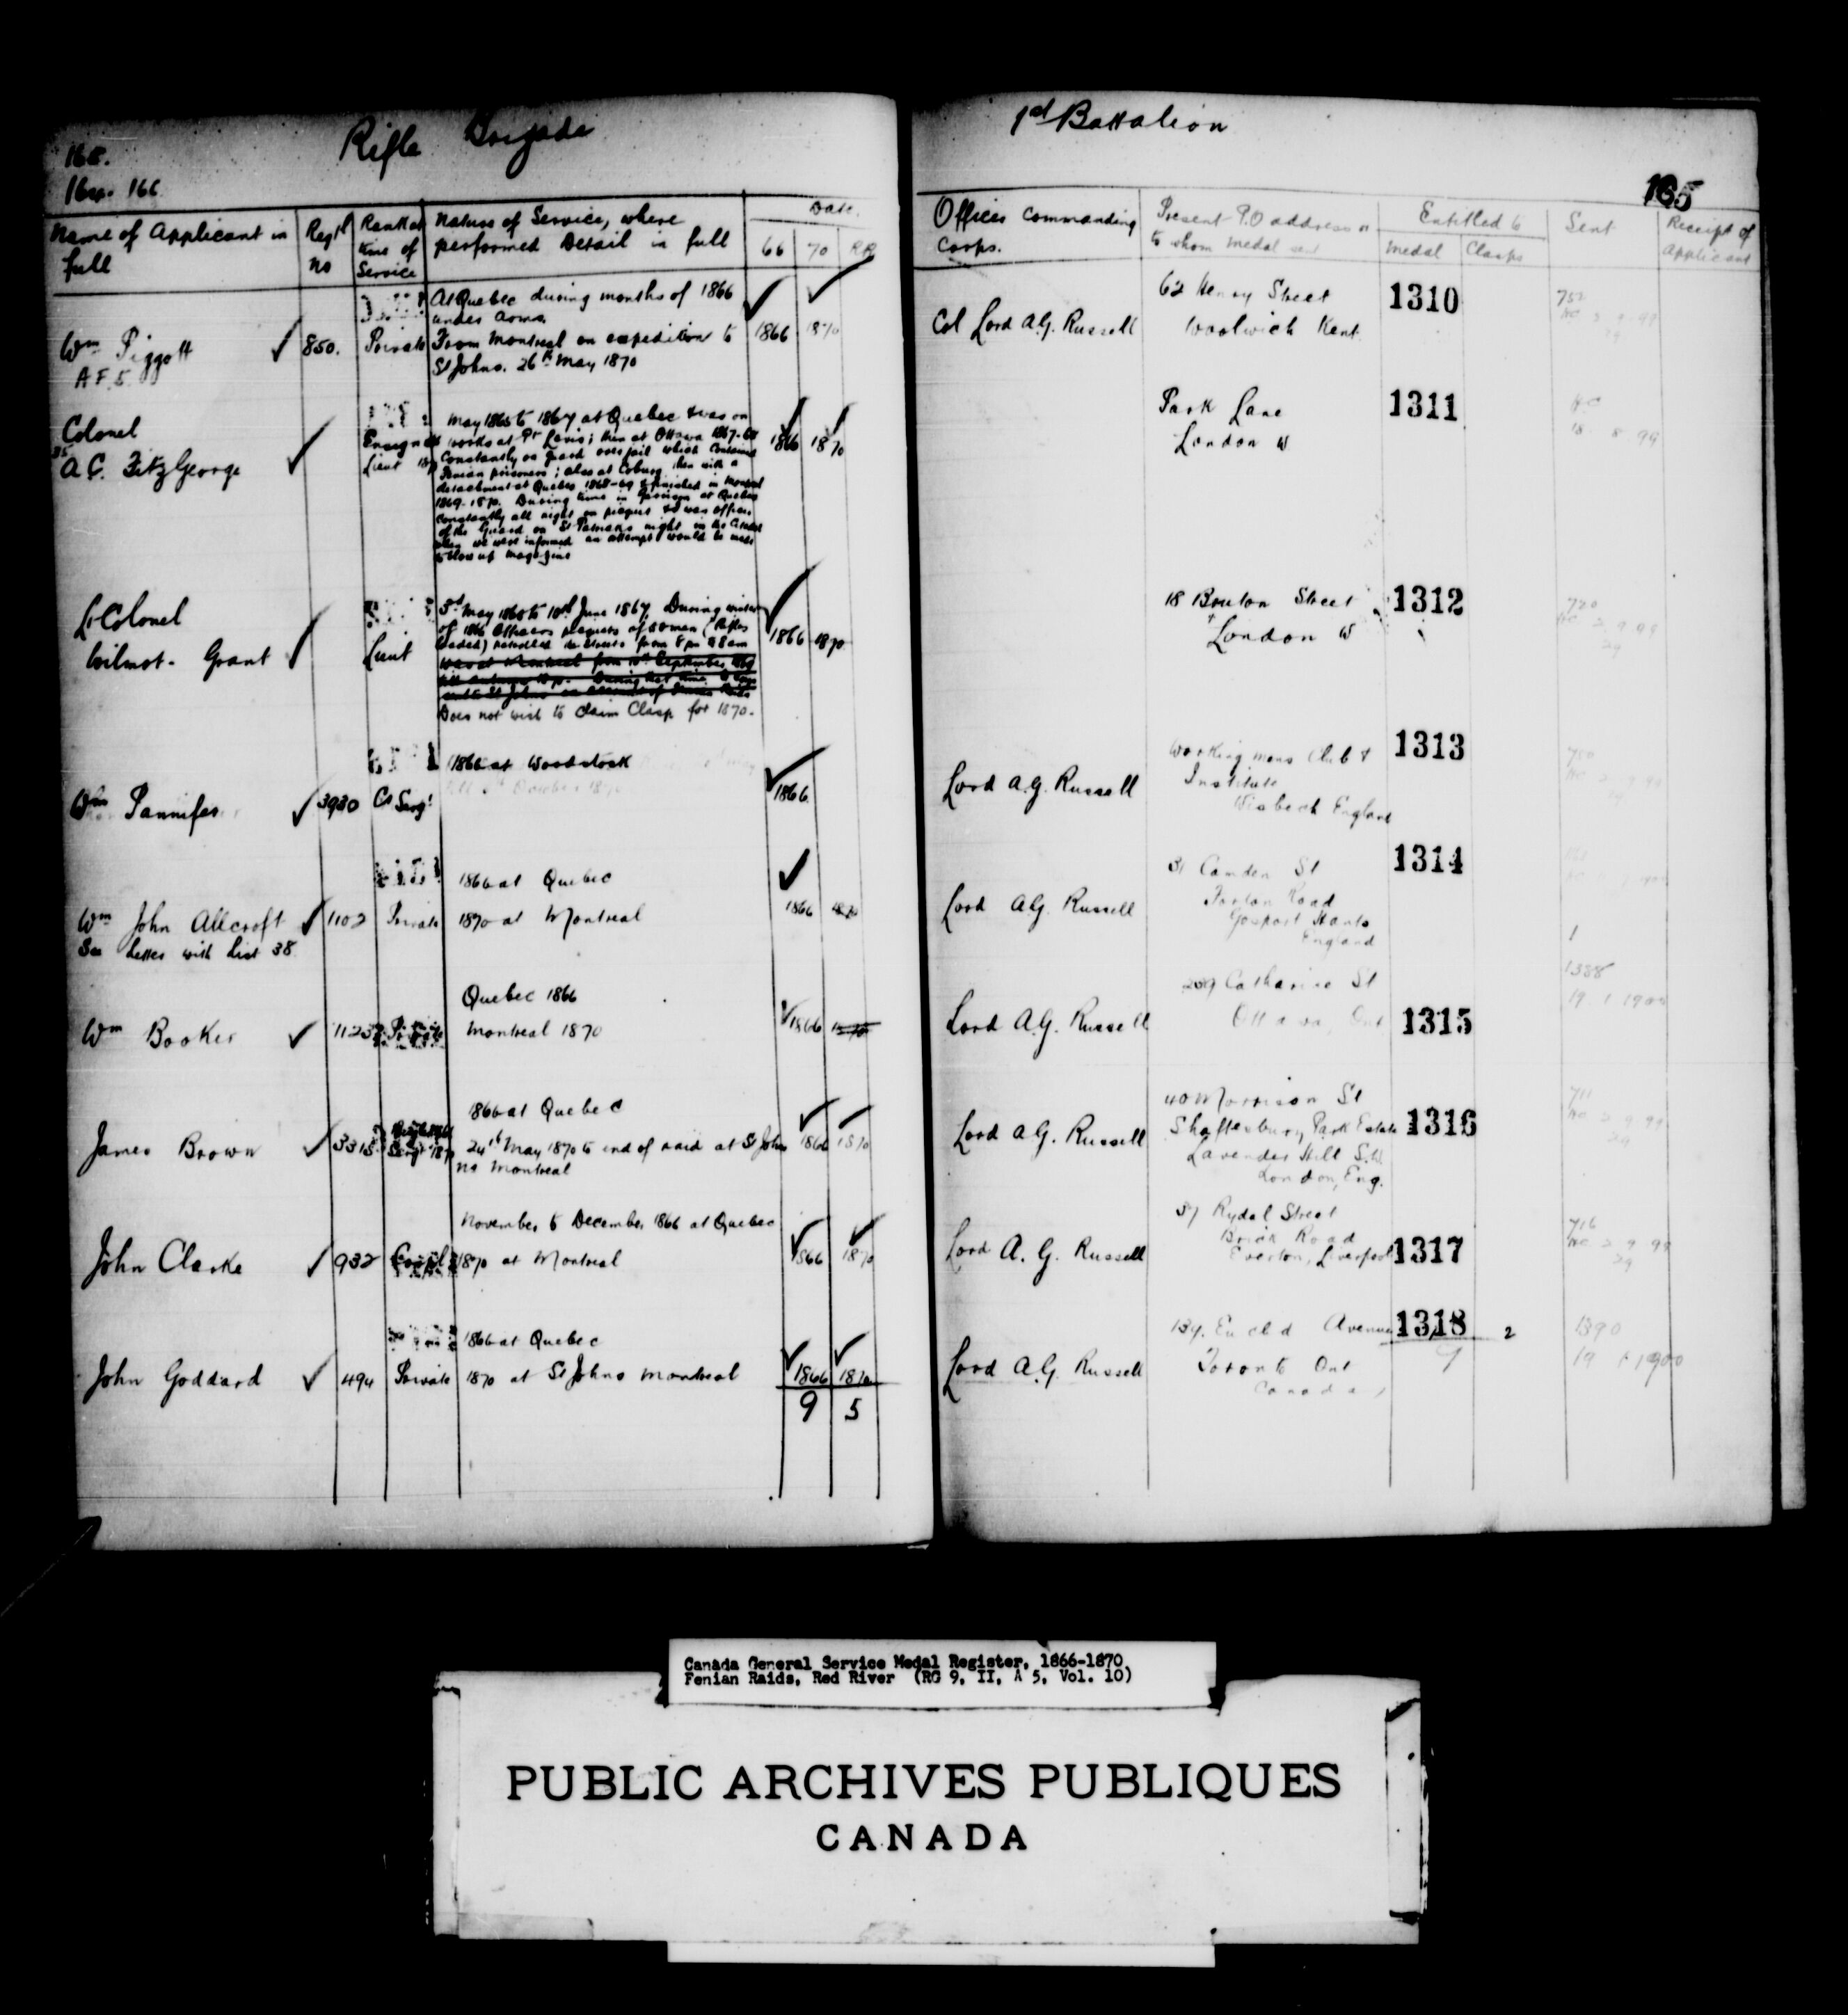 Rifle Brigade
166
Name of Applicant in full
Reg'l no
Rank at time of Service
Nature of Service, where performed Detail in full
Date
66 70 RR
Wm Piggott
A F 5
850.
Private
At Quebec during months of 1866
under arms.
From Montreal on expedition to
St Johns. 26th May 1870
1866 1870
Colonel
A C. FitzGeorge
Ensign
Lieut
May 1865 to 1867 at Quebec & was on
works at Pt Levis; then at Ottawa 1867-68
Constantly on guard over jail which contained
Fenian prisoners; also at Coburg then with a
detachment at Quebec 1868-69 & finished in Montreal
1869-1870. During time in Garrison at Quebec
Constantly all night on picquet & was officer
of the Guard on St Patricks night in the Citadel
when we were informed an attempt would be made
to blow up magazine
1866 1870
Lt Colonel
Wilmot-Grant
Lieut
of 1866 Officers picquets of 20 men (Rifles
loaded) patrolled the streets from 8 pm
Does not wish to claim Clasp for 1870.
1866 1870
Wm Pannifer
3930
Cr Sergt
1866 at Woodstock
1866
Wm John Allcroft
See Letter with List 38
1102
Private
1866 at Quebec
1870 at Montreal
1866 1870
Wm Booker
1123
Private
Quebec 1866
Montreal 1870
1866 1870
James Brown
3318
Sergt 1870
1866 at Quebec
24th May 1870 to end of raid at St Johns
nr Montreal
1866 1870
John Clarke
932
Corpl
November to December 1866 at Quebec
1870 at Montreal
1866 1870
John Goddard
494
Private
1866 at Quebec
1870 at St Johns Montreal
1866 1870
9 5
1st Battalion
165
Officer Commanding Corps.
Present P.O address or to whom medal sent
Entitled to
Medal Clasps
Sent
Receipt of Applicant
Col Lord A.G. Russell
62 Henry Street
Woolwich Kent
1310
Park Lane
London W
1311
18 8 99
18 Bruton Street
London W
1312
Lord A.G. Russell
Working mens Club &
Institute
Wisbech England
1313
Lord A.G. Russell
31 Camden St
Forton Road
Gosport Hants
England
1314
Lord A.G. Russell
239 Catharine St
Ottawa, Ont
1315
1388
19 1 1900
Lord A.G. Russell
40 Morrison St
Shaftesbury Park Estate
Lavender Hill S.W.
London, Eng.
1316
711
Lord A. G. Russell
37 Rydal Street
Brick Road
Everton, Liverpool
1317
716
Lord A.G. Russell
139. Euclid Avenue
Toronto Ont
Canada
1318
9
2
1390
19 1 1900
Canada General Service Medal Register, 1866-1870
Fenian Raids, Red River (RG 9, II, A 5, Vol. 10)
PUBLIC ARCHIVES PUBLIQUES
CANADA